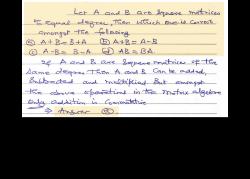 Let A and B are square matrices
to equal degree, Then which one is correct
amongst the following
(a) A+B = B+A (b) A+B = A-B
(c) A-B = B-A (d) AB = BA
If A and B are square matrices of the
same degree Then A and B can be added,
subtracted and multiplied But amongst
the above operations in the matrix algebra
only addition is commutative
⇒ Answer (a)